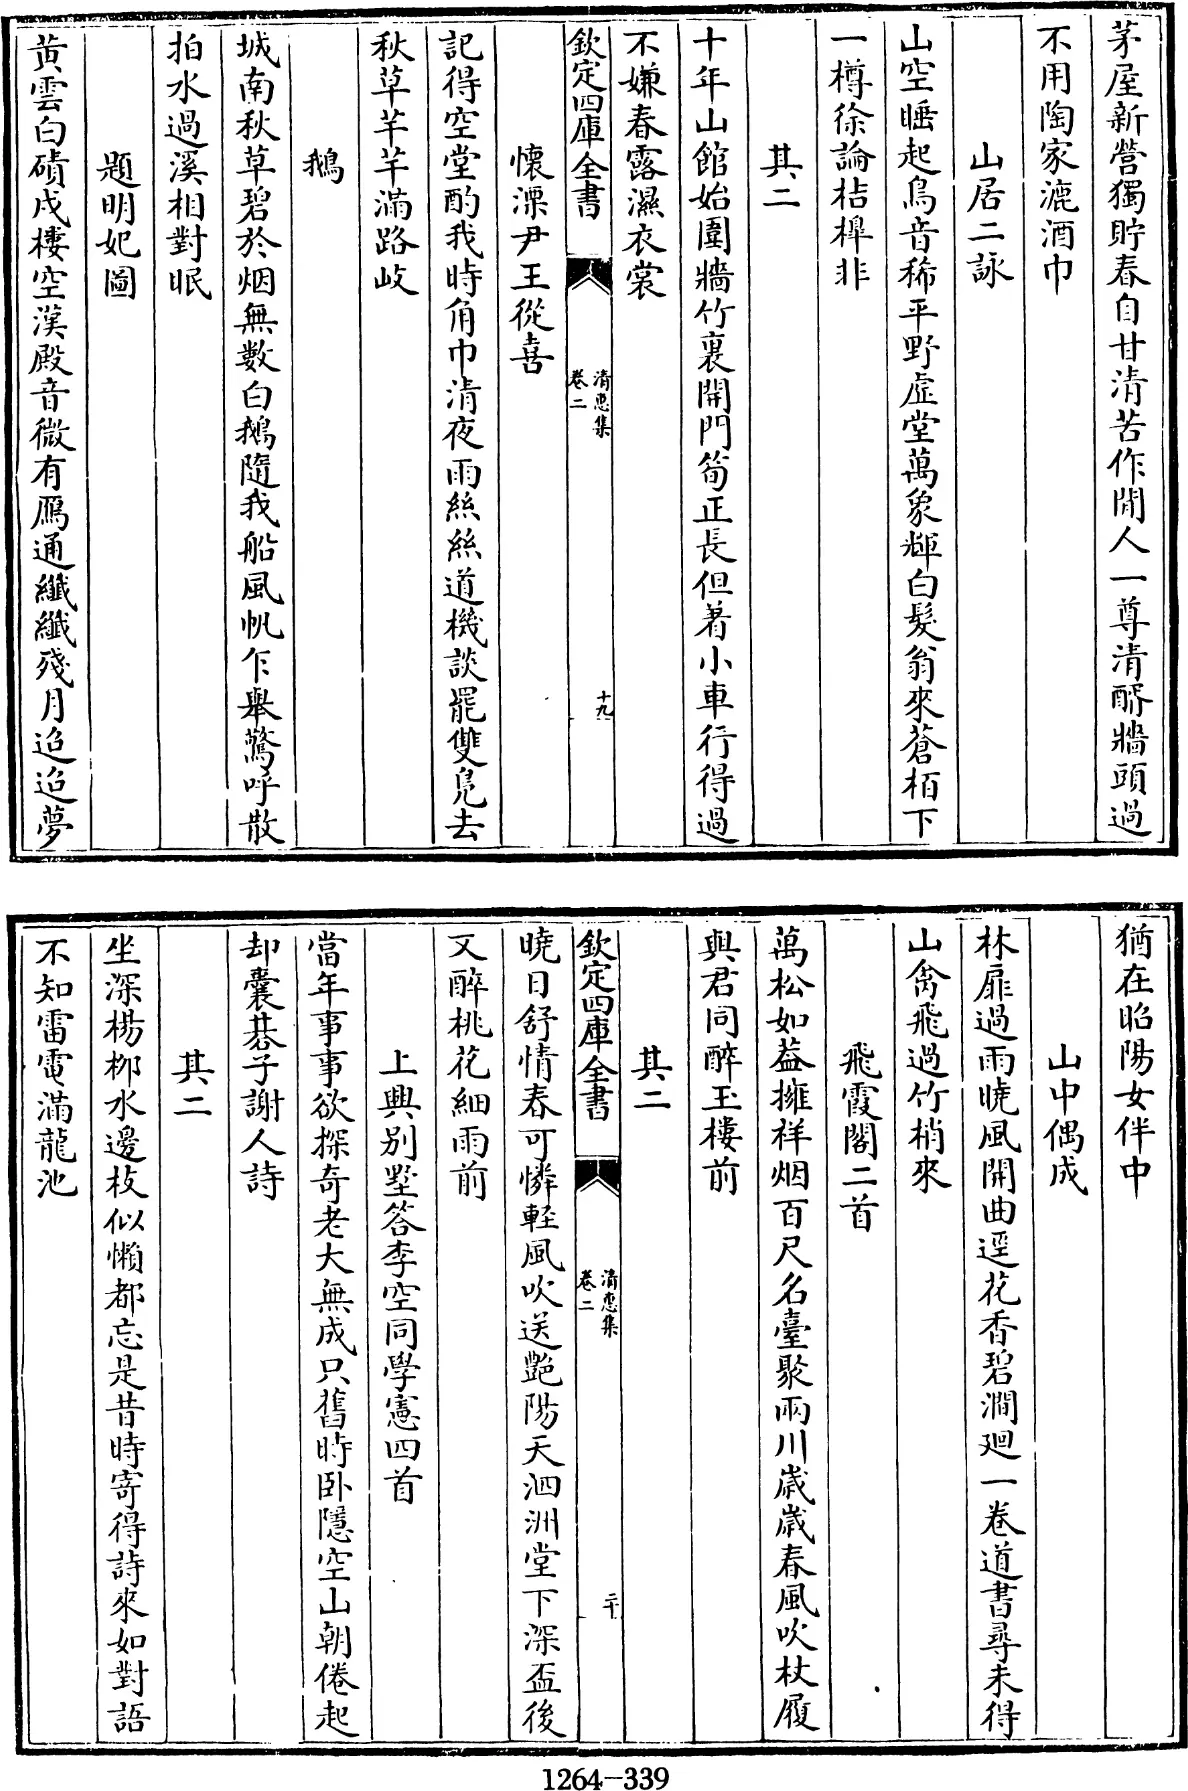 茅屋新營獨貯春自甘清苦作閒人一尊清酹牆頭過
不用陶家漉酒巾
山居二詠
山空睡起鳥音稀平野虛堂萬象輝白髮翁來蒼栢下
一樽徐論桔橰非
其二
十年山館始圍牆竹裏開門筍正長但著小車行得過
不嫌春露濕衣裳
欽定四庫全書
清惠集
卷二
十九
懷溧尹王從喜
記得空堂酌我時角巾清夜雨絲絲道機談罷雙鳧去
秋草芊芊滿路岐
鵝
城南秋草碧於烟無數白鵝隨我船風帆乍舉驚呼散
拍水過溪相對眠
題明妃圖
黄雲白磧戍樓空漢殿音微有鴈通纖纖殘月迢迢夢
猶在昭陽女伴中
山中偶成
林扉過雨曉風開曲逕花香碧澗廻一卷道書尋未得
山禽飛過竹梢來
飛霞閣二首
萬松如葢擁祥烟百尺名臺聚兩川歲歲春風吹杖履
與君同醉玉樓前
其二
欽定四庫全書
清惠集
卷二
二十
曉日舒情春可憐輕風吹送艷陽天泗洲堂下深盃後
又醉桃花細雨前
上興别墅答李空同學憲四首
當年事事欲探奇老大無成只舊時卧隱空山朝倦起
却囊碁子謝人詩
其二
坐深楊栁水邊枝似懶都忘是昔時寄得詩來如對語
不知雷電滿龍池
1264-339